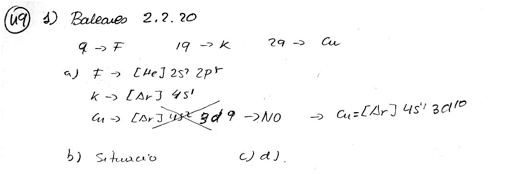 49 1) Baleares 2.2.20
9 → F 19 → K 29 → Cu
a) F → [He] 2s² 2p⁵
K → [Ar] 4s¹
Cu → [Ar] 4s² 3d9 → NO → Cu = [Ar] 4s¹ 3d¹⁰
b) Situació c) d).